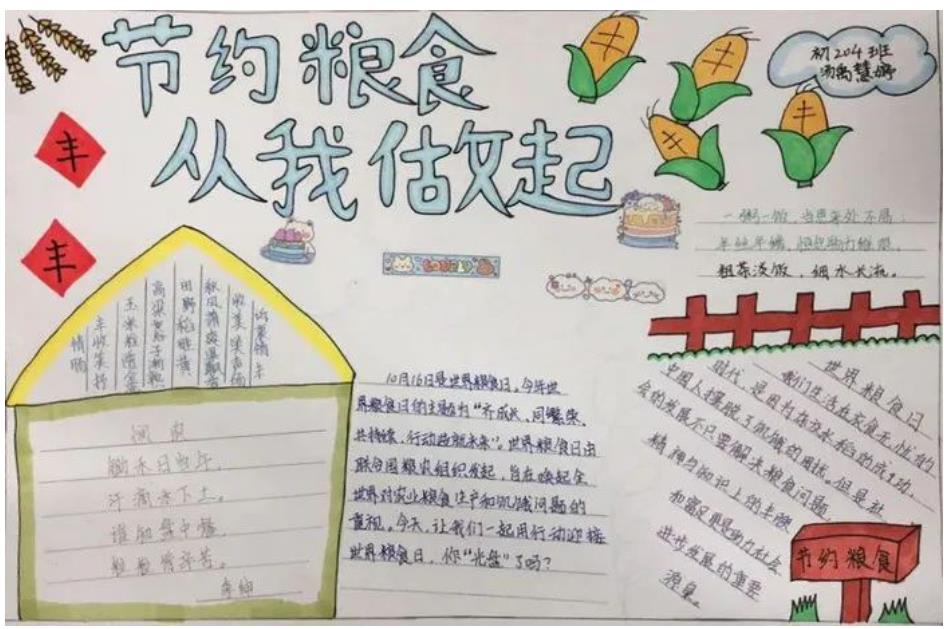 节约粮食
从我做起
初204班
丰
丰
丰
丰
丰
丰
一粥一饭,当思来处不易;
半丝半缕,恒念物力维艰。
粗茶淡饭,细水长流。
田野稻
高粱
玉米粒
丰收笑抒
情
悯农
锄禾日当午,
汗滴禾下土。
谁知盘中餐,
粒粒皆辛苦。
李绅
10月16日是世界粮食日。今年世
界粮食日的主题为“齐成长、同繁荣、
共持续,行动造就未来”。世界粮食日由
联合国粮农组织发起,旨在唤起全
世界对农业粮食生产和饥饿问题的
重视。今天,让我们一起用行动迎接
世界粮食日,你“光盘”了吗?
世界粮食日
我们生活在衣食无忧的
时代,是因为杂交水稻的成功,
中国人摆脱了饥饿的困扰。但是社
会的发展不只要解决粮食问题,
精神与知识上的丰腴
和富足更是助力社会
进步发展的重要
源泉。
节约粮食